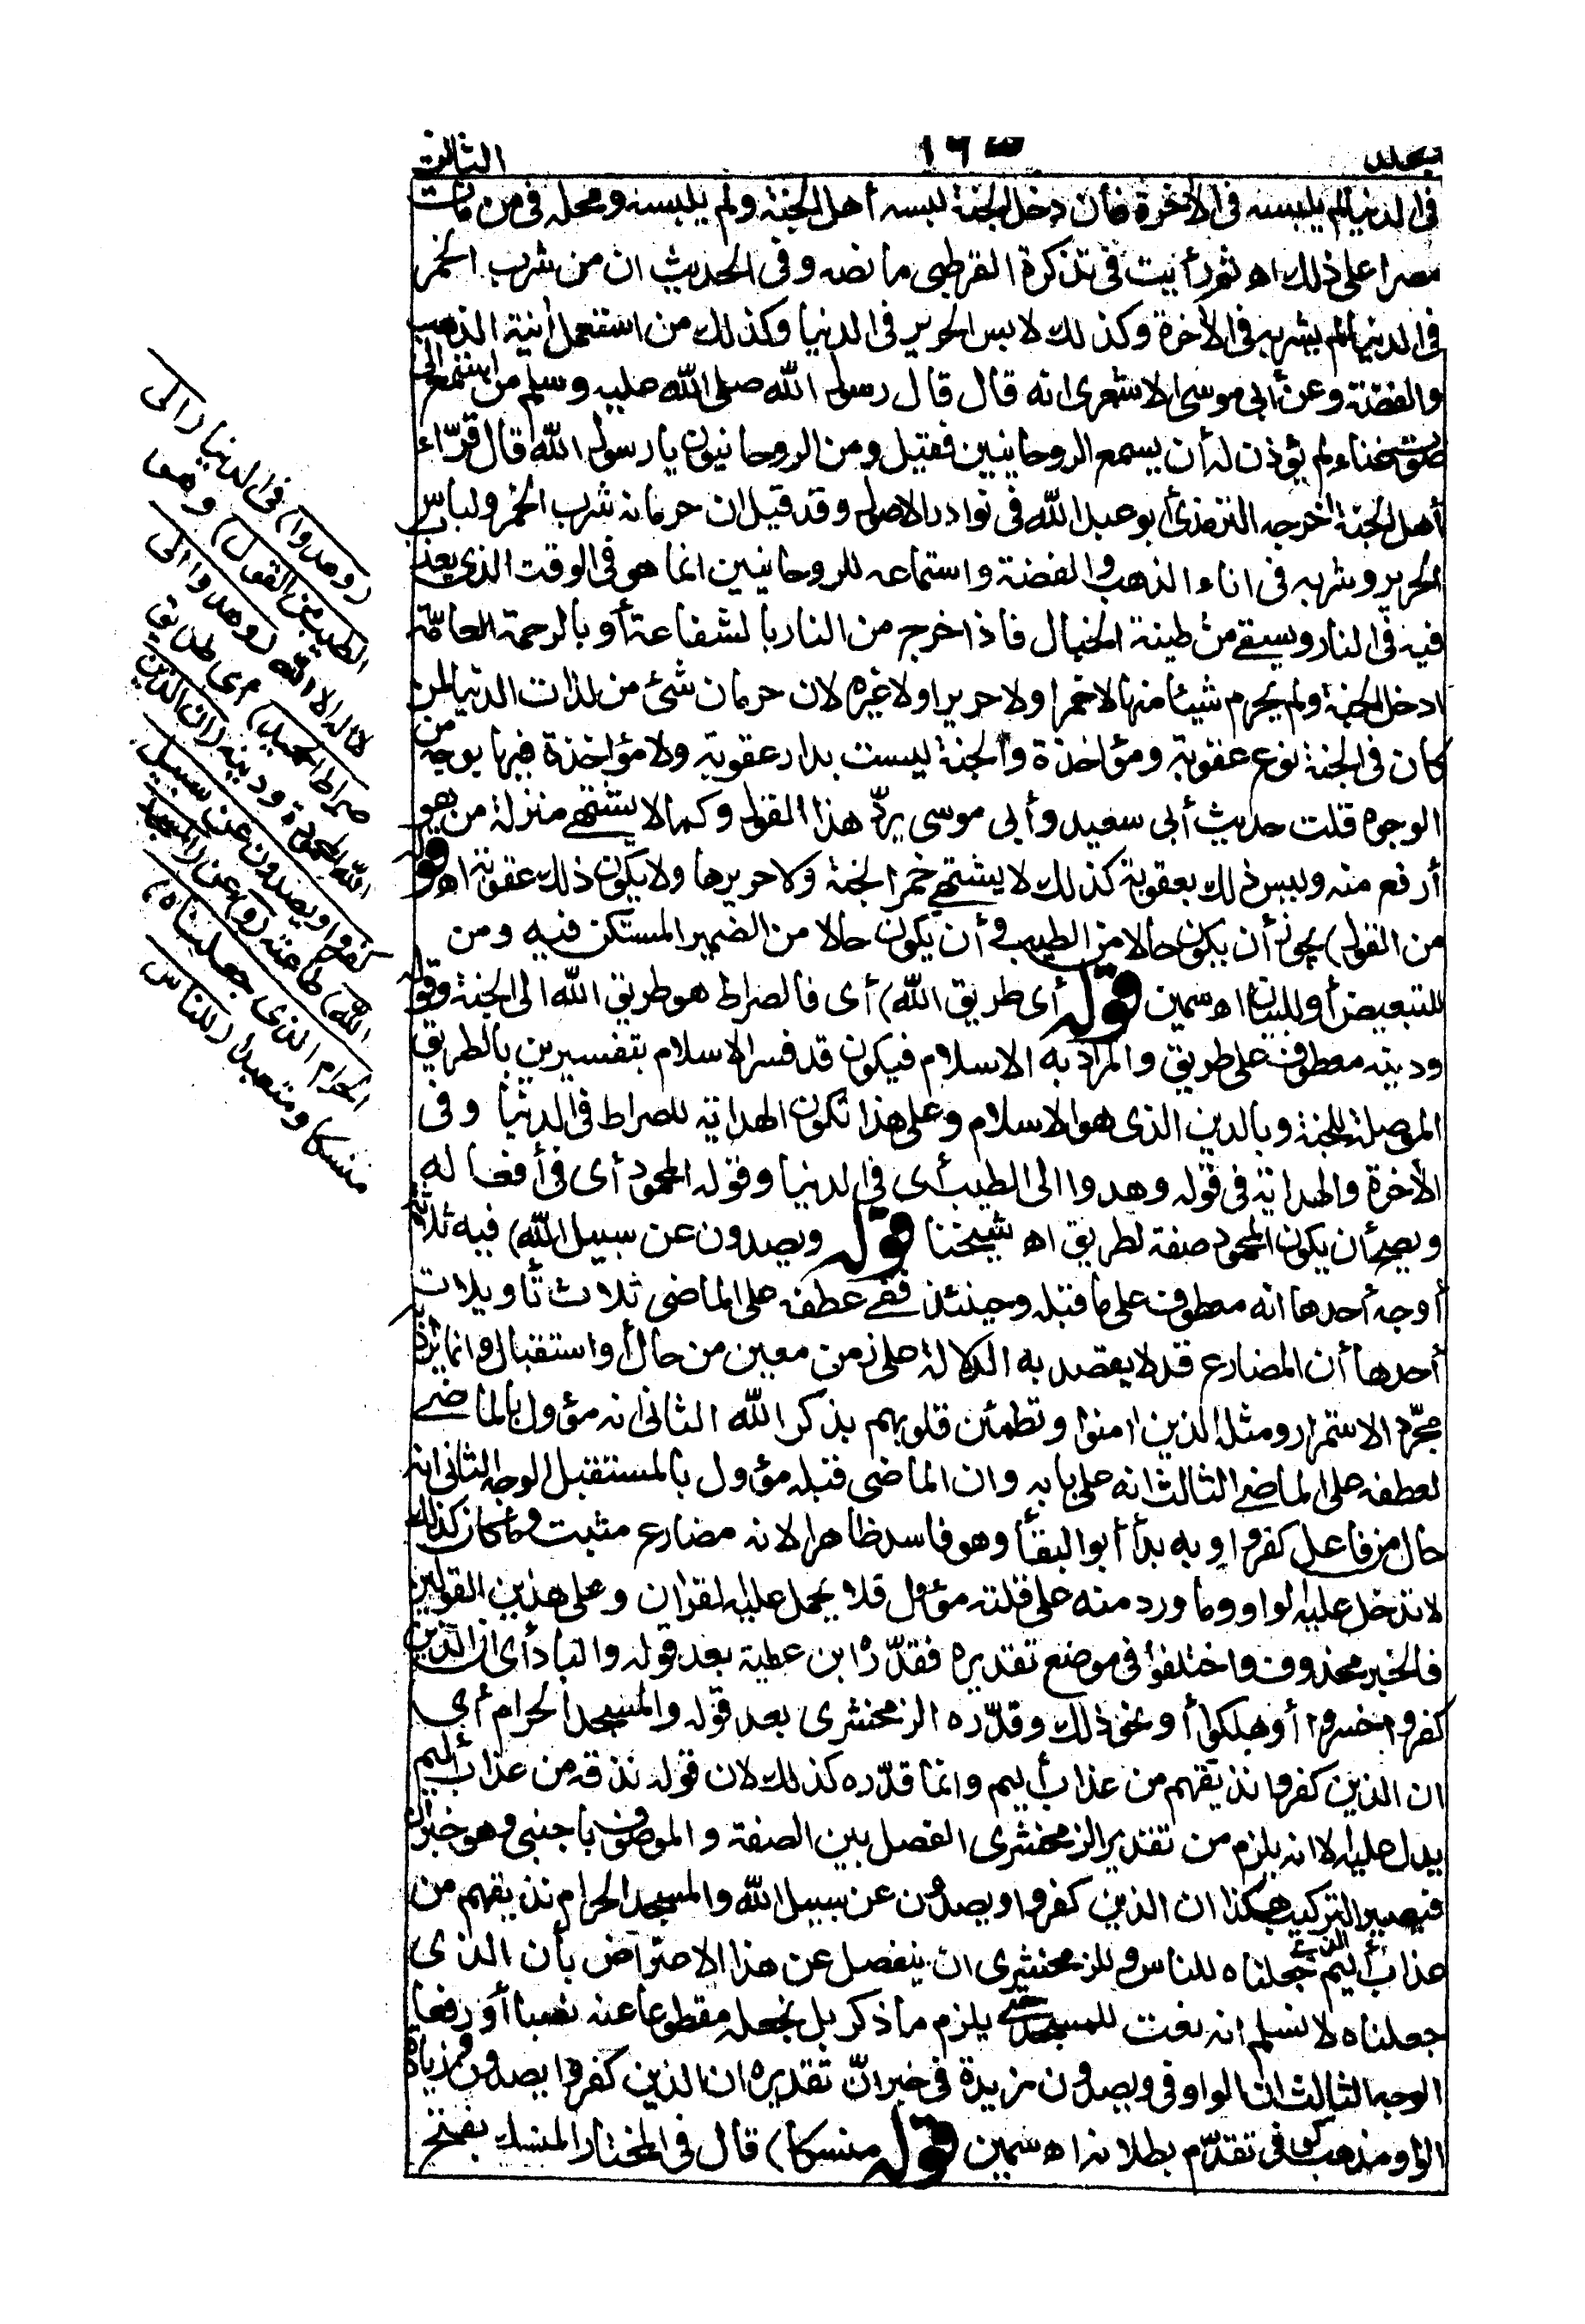 المجلد ١٦٣ الثالث
فى الدنيا لم يلبسه فى الآخرة فان دخل الجنة لبسه أهل الجنة ولم يلبسه ومحله فى من مات
مصرا على ذلك اه ثم رأيت فى تذكرة القرطبى ما نصه وفى الحديث ان من شرب الخمر
فى الدنيا لم يشربه فى الآخرة وكذلك لابس الحرير فى الدنيا وكذلك من استعمل انية الذهب
والفضة وعن أبى موسى الاشعرى انه قال قال رسول الله صلى الله عليه وسلم من استمع الى
صوت غناء لم يؤذن له أن يسمع الروحانيين فقيل ومن الروحانيون يا رسول الله قال قرّاء
أهل الجنة اخرجه الترمذى أبو عبد الله فى نوادر الاصول وقد قيل ان حرمانه شرب الخمر ولباس
الحرير وشربه فى اناء الذهب والفضة واستماعه للروحانيين انما هو فى الوقت الذى يعذب
فيه فى النار ويسقى من طينة الخبال فاذا خرج من النار بالشفاعة أو بالرحمة العامّة
ادخل الجنة ولم يحرم شيئا منها لا خمرا ولا حريرا ولا غيره لان حرمان شئ من لذات الدنيا لمن
كان فى الجنة نوع عقوبة ومؤاخذة والجنة ليست بدار عقوبة ولا مؤاخذة فيها بوجه من
الوجوه قلت حديث أبى سعيد وأبى موسى يردّ هذا القول وكما لا يشتهى منزلة من هو
أرفع منه وليس ذلك بعقوبة كذلك لا يشتهى خمر الجنة ولا حريرها ولا يكون ذلك عقوبة اه قوله
من القول) يجوز أن يكون حالا من الطيب وأن يكون حالا من الضمير المستكن فيه ومن
للتبعيض أو للبيان اه سمين قوله أى طريق الله) أى فالصراط هو طريق الله الى الجنة وقوله
ودينه معطوف على طريق والمراد به الاسلام فيكون قد فسر الاسلام بتفسيرين بالطريق
الموصلة للجنة وبالدين الذى هو الاسلام وعلى هذا تكون الهداية للصراط فى الدنيا وفى
الآخرة والهداية فى قوله وهدوا الى الطيب أى فى الدنيا وقوله المحمود أى فى أفعاله
ويصح أن يكون المحمود صفة لطريق اه شيخنا قوله ويصدون عن سبيل الله) فيه ثلاثة
أوجه أحدها انه معطوف على ما قبله وحينئذ ففى عطفه على الماضى ثلاث تأويلات
أحدها أن المضارع قد لا يقصد به الدلالة على زمن معين من حال أو استقبال وانما يراد به
مجرّد الاستمرار ومثله الذين امنوا وتطمئن قلوبهم بذكر الله الثانى انه مؤول بالماضى
لعطفه على الماضى الثالث انه على بابه وان الماضى قبله مؤول بالمستقبل الوجه الثانى انه
حال من فاعل كفروا وبه بدأ أبو البقأ وهو فاسد ظاهرا لانه مضارع مثبت وما كان كذلك
لا تدخل عليه الواو وما ورد منه على قلته مؤول فلا يحمل عليه القران وعلى هذين القولين
فالخبر محذوف واختلفوا فى موضع تقديره فقدّره ابن عطية بعد قوله والباد أى ان الذين
كفروا خسروا أو هلكوا أو نحو ذلك وقدّره الزمخشرى بعد قوله والمسجد الحرام أى
ان الذين كفروا نذيقهم من عذاب أليم وانما قدّره كذلك لان قوله نذقه من عذاب أليم
يدل عليه الا انه يلزم من تقدير الزمخشرى الفصل بين الصفة والموصوف باجنبى وهو خبر ان
فيصير التركيب هكذا ان الذين كفروا ويصدون عن سبيل الله والمسجد الحرام نذيقهم من
عذاب أليم الذى جعلناه للناس وللزمخشرى ان ينفصل عن هذا الاعتراض بأن الذى
جعلناه لا نسلم انه نعت للمسجد حتى يلزم ما ذكر بل نجعله مقطوعا عنه نصبا أو رفعا
الوجه الثالث ان الواو فى ويصدون مزيدة فى خبر انّ تقديره ان الذين كفروا يصدون وزيادة
الواو مذهب كوفى تقدّم بطلانه اه سمين قوله منسكا) قال فى المختار المنسك بفتح
(وهدوا) فى الدنيا (الى
الطيب من القول) وهو
لا اله الا الله (وهدوا الى
صراط الحميد) أى طريق
الله المحمودة ودينه (ان الذين
كفروا ويصدون عن سبيل
الله) طاعته (و) عن (المسجد
الحرام الذى جعلناه)
منسكا ومتعبدا (للناس